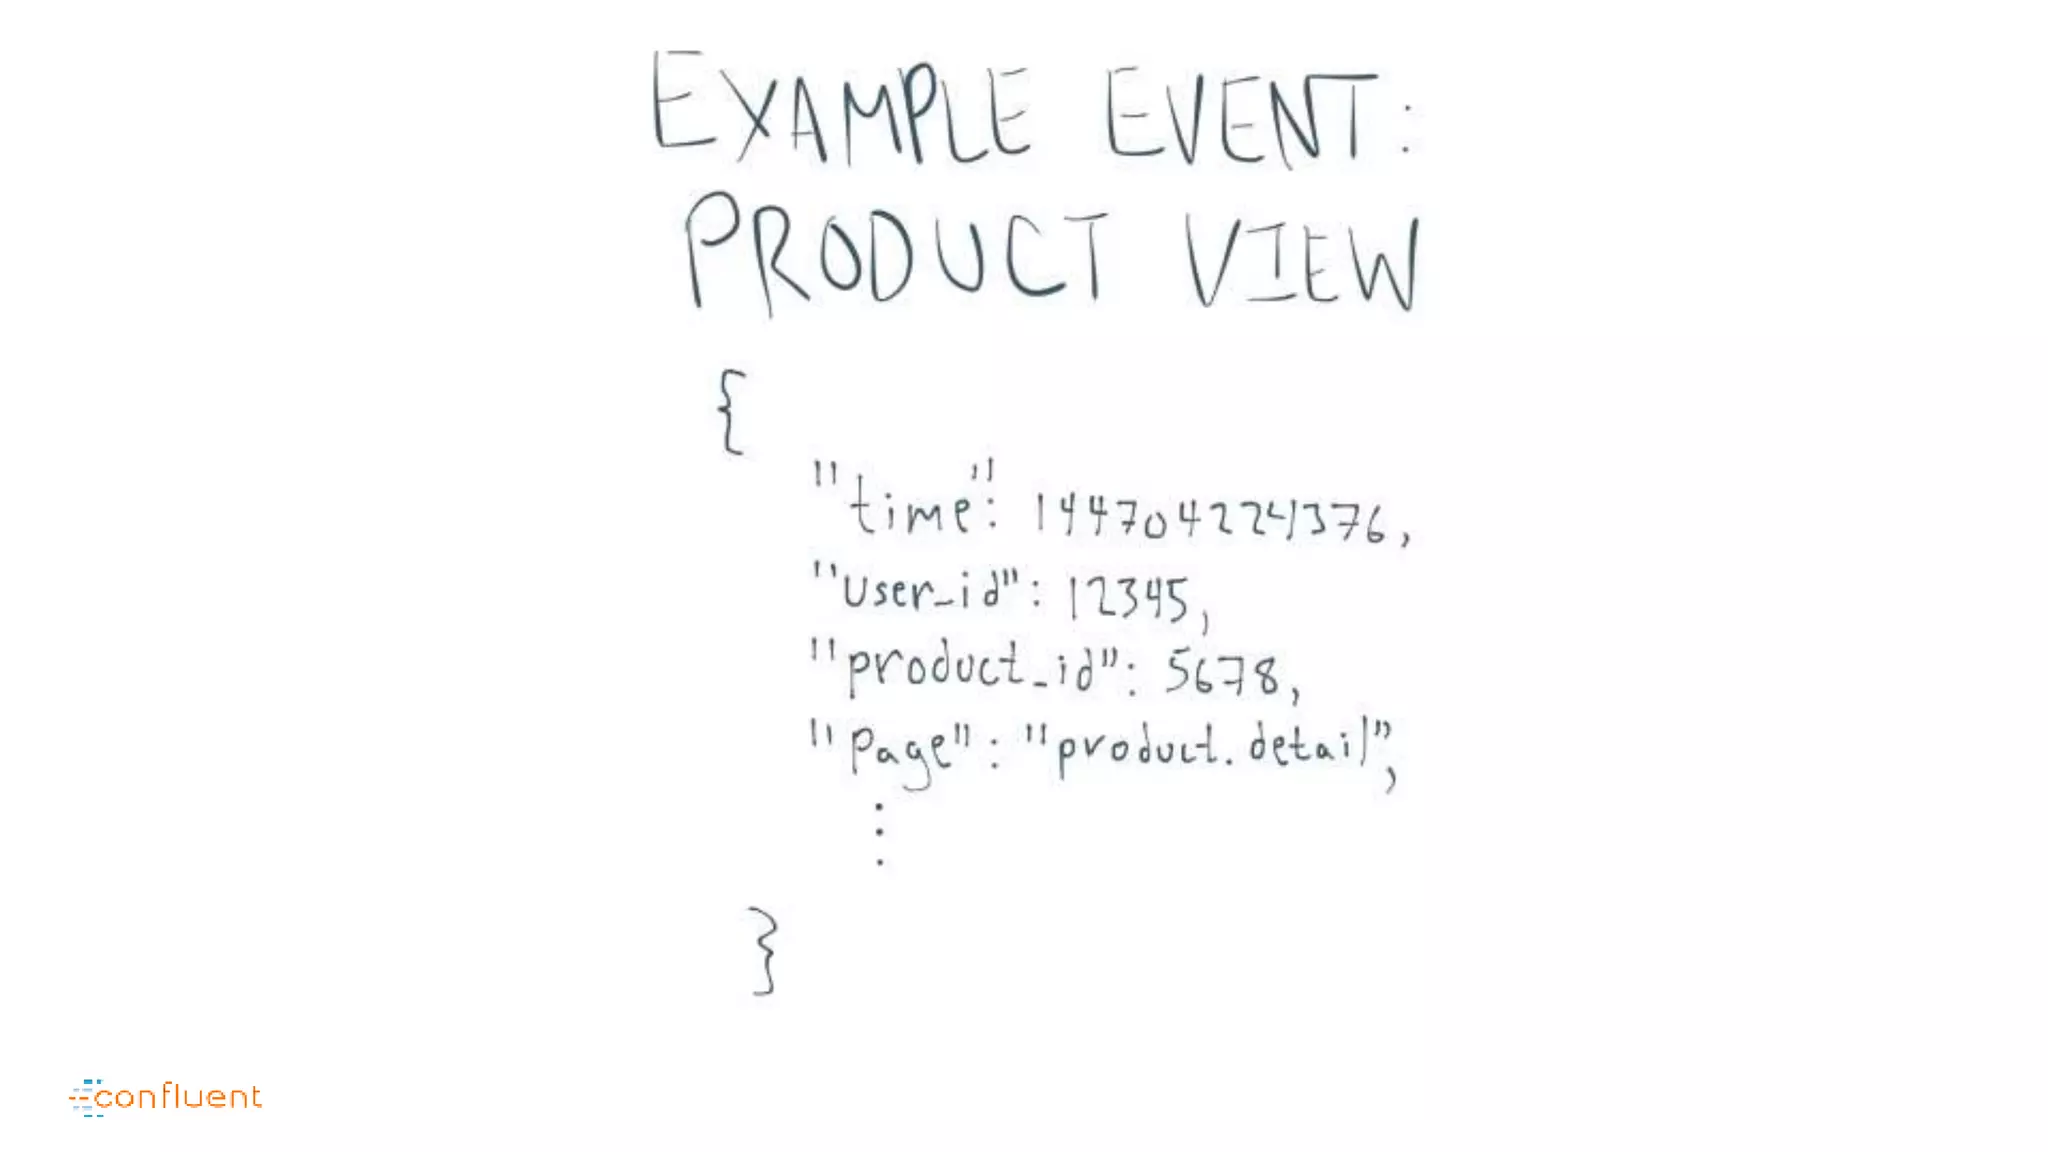 EXAMPLE EVENT:
PRODUCT VIEW
{
"time": 1447042241376,
"user_id": 12345,
"product_id": 5678,
"page": "product.detail",
⋮
}
confluent